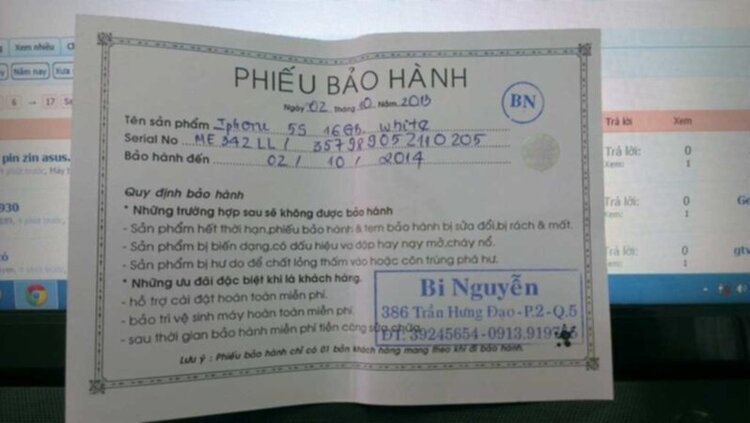 Xem nhiều
Năm nay
Xưa
6 → 17
pin zin asus.
930
Trả lời Xem
Trả lời: 0
Xem: 1
Trả lời: 0
Xem: 1
Trả lời: 0
Xem: 1
PHIẾU BẢO HÀNH
Ngày 02 tháng 10 Năm 2013
BN
Tên sản phẩm Iphone 5S 16GB white
Serial No ME 342 LL / 357989052110205
Bảo hành đến 02 / 10 / 2014
Quy định bảo hành
* Những trường hợp sau sẽ không được bảo hành
- Sản phẩm hết thời hạn,phiếu bảo hành & tem bảo hành bị sửa đổi,bị rách & mất.
- Sản phẩm bị biến dạng,có dấu hiệu va đập hay nạy mở,cháy nổ.
- Sản phẩm bị hư do để chất lỏng thấm vào hoặc côn trùng phá hư.
* Những ưu đãi đặc biệt khi là khách hàng.
- hỗ trợ cài đặt hoàn toàn miễn phí.
- bảo trì vệ sinh máy hoàn toàn miễn phí.
- sau thời gian bảo hành miễn phí tiền công sửa chữa.
Bi Nguyễn
386 Trần Hưng Đạo - P.2 - Q.5
ĐT: 39245654 -
Lưu ý : Phiếu bảo hành chỉ có 01 bản khách hàng mang theo khi đi bảo hành.